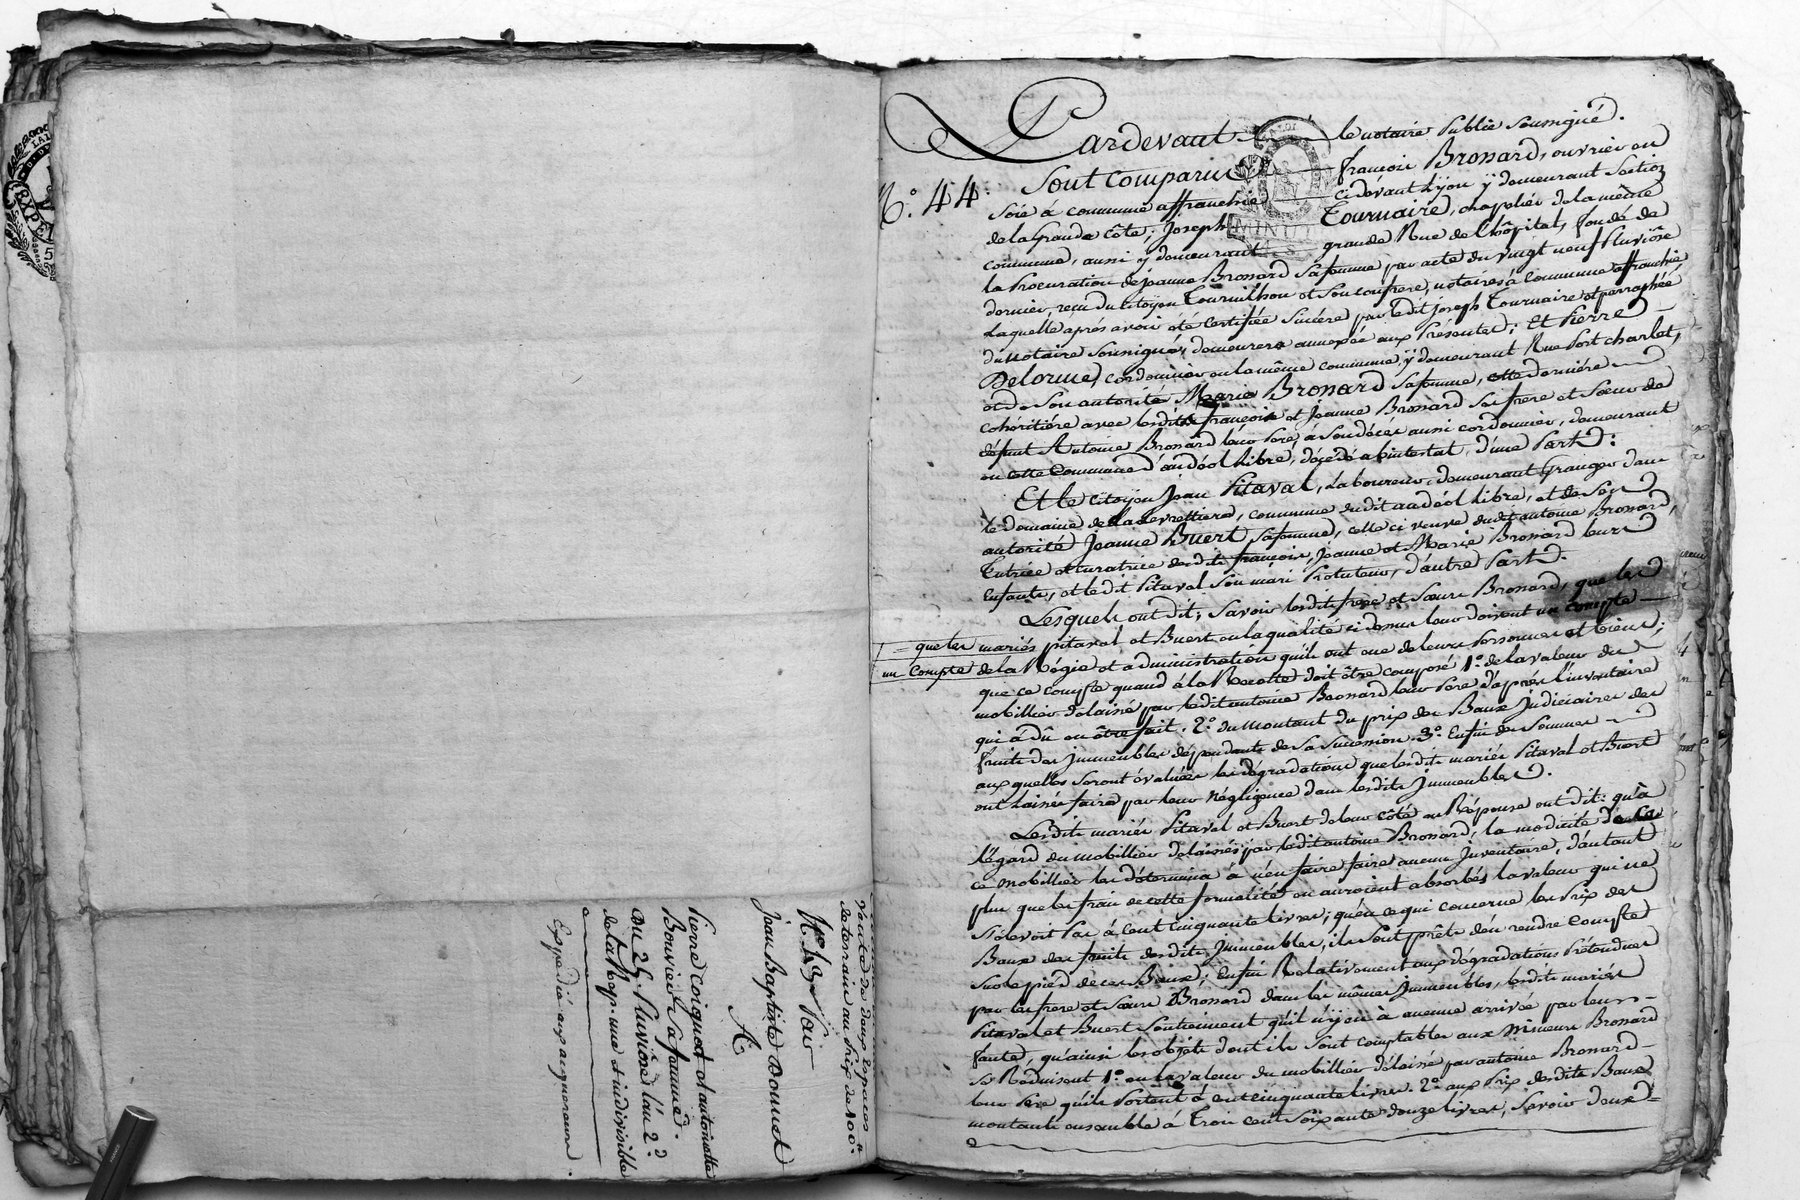 Vente de deux Espaces
de terrain au Prix de 400#.
N.o 43. Pour
Jean Baptiste Donnet
A
Pierre Coignat et antoinette
Bouvier Sa femme.
Du 25. Pluviôse l'an 2.d
de la Rep. une et indivisible
Expedié aux acquereurs.
N.o 44.
Pardevant le notaire Public Soussigné.
Sont comparus françois Bronard, ouvrier en
Soie à commune affranchie cidevant Lyon y demeurant Section
de la Grande Côte; Joseph Tournaire, chapelier de la même
commune, aussi y demeurant grande Rue de l'hôpital, fondé de
la Procuration de jeanne Bronard Sa femme par acte du vingt neuf Pluviôse
dernier, reçu du Citoyen Tournilhon et Son confrere, notaires à Commune affranchie
Laquelle après avoir été Certifiée Sincére par ledit joseph Tournaire et parraphée
du notaire Soussigné, demeurera annexée aux Présentes; Et Pierre
Delorme, cordonnier en la même commune, y demeurant Rue Port charlet,
et de Son autorité Marie Bronard Sa femme, cette derniére
cohéritiére avec lesdits françois et Jeanne Bronard Ses frere et Sœur de
défunt Antoine Bronard leur Pere, à Son décès aussi cordonnier, demeurant
en cette Commune d'andéol Libre, décedé abintestat, d'une Part:
Et le citoyen Jean Pitaval, Laboureur, demeurant Granger dans
le domaine de la, commune dudit andéol Libre, et de Son
autorité Jeanne Buert Sa femme, celle ci veuve dudit antoine Bronard,
Tutrice et curatrice desdits françois, jeanne et Marie Bronard leurs
Enfants, et ledit Pitaval Son mari Protuteur, d'autre Part.
Lesquels ont dit; Savoir lesdits frere et Sœurs Bronard, que les
= que les mariés pitaval et Buert en la qualité ci dessus leur doivent un compte
un Compte de la Régie et administration qu'ils ont eue de leurs Personnes et biens;
que ce compte quand à la Recette doit être composé 1.o de la valeur du
mobillier délaissé par ledit antoine Bronard leur Pere d'après l'inventaire
qui a dû en être fait. 2.o du Montant du prix des Baux judiciaires des
fruits des jmmeubles dépendants de Sa Succession. 3.o Enfin des Sommes
aux quelles Seront évaluées les dégradations que lesdits mariés Pitaval et Buert
ont laissé faire par leur négligence dans lesdits jmmeubles.
Lesdits mariés Pitaval et Buert de leur côté en Réponse ont dit: qu'à
l'égard du mobillier délaissé par ledit antoine Bronard, la modicité de
ce mobillier les détermina à n'en faire faire aucun jnventaire, d'autant
plus que les frais de cette formalité en auroient absorbés la valeur qui ne
s'élevoit Pas à Cent Cinquante livres; qu'en ce qui concerne les Prix des
Baux des fruits desdits jmmeubles, ils Sont prêts d'en rendre Compte
Sur le pied de ces Baux; Enfin Relativement aux dégradations Prétendues
par les frere et Sœurs Bronard dans les mêmes jmmeubles, lesdits mariés
Pitaval et Buert Soutiennent qu'il n'y en a aucune arrivée par leur
faute, qu'ainsi les objets dont ils Sont comptables aux Mineurs Bronard
Se Réduisent 1.o en la valeur du mobillier délaissé par antoine Bronard
leur Pere qu'ils Portent à cent cinquante livres. 2.o aux Prix desdits Baux
montants ensemble à Trois cent Soixante douze livres, Savoir deux